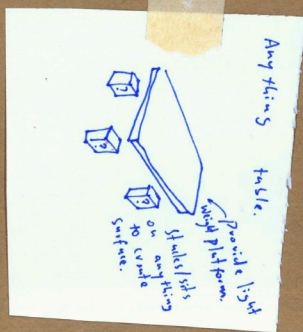 Anything table.
Provide light
weight platform.
?
?
?
on anything
to create
surface.